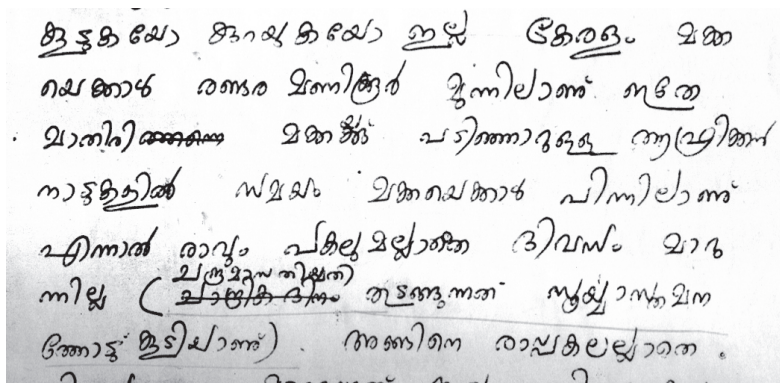 കൂട്ടുകയോ കുറയുകയോ ഇല്ല കേരളം മക്ക
യെക്കാൾ രണ്ടര മണിക്കൂർ മുന്നിലാണ് ഇതേ
മാതിരി മക്കക്ക് പടിഞ്ഞാറുള്ള ആഫ്രിക്കൻ
നാട്ടുകളിൽ സമയം മക്കയെക്കാൾ പിന്നിലാണ്
എന്നാൽ രാവും പകലുമല്ലാതെ ദിവസം മാറു
ചന്ദ്രമാസ തിയ്യതി
ന്നില്ല ( തുടങ്ങുന്നത് സൂര്യാസ്തമന
ത്തോട് കൂടിയാണ്) . അങ്ങിനെ രാപ്പകലല്ലാതെ .